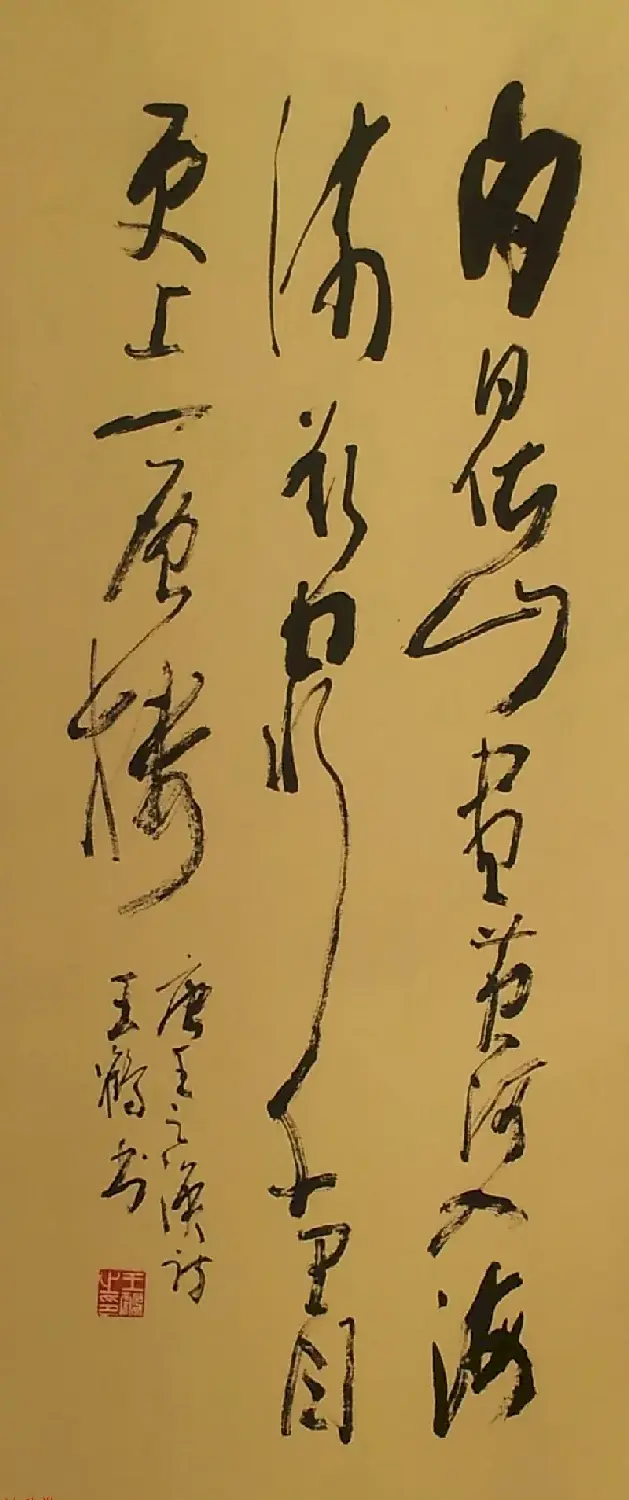 白日依山尽黄河入海
流欲穷千里目
更上一层楼
唐王之涣诗
王鹤书
王鹤之印